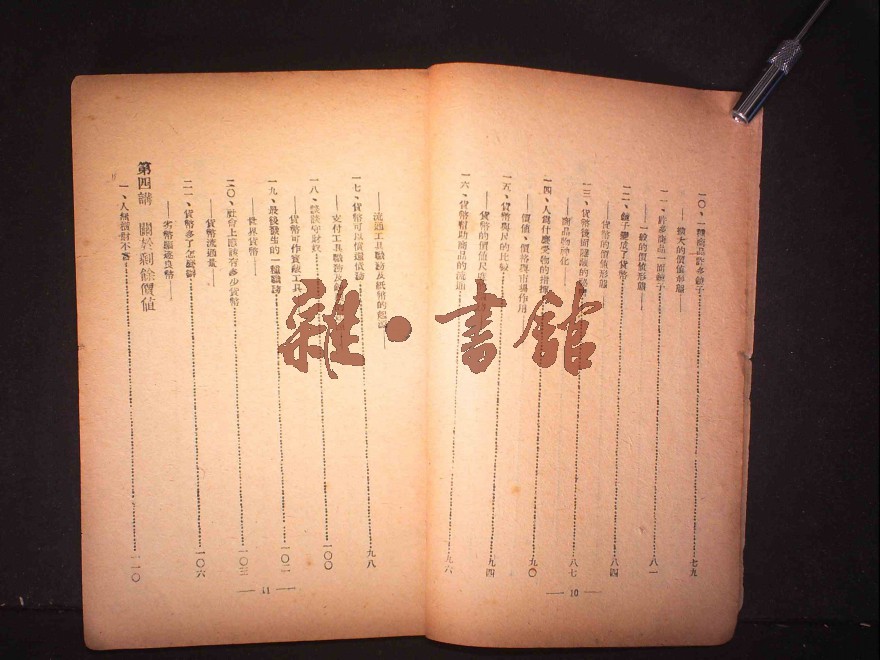 一〇、一種商品許多鏡子……七九
——擴大的價值形態——
一一、許多商品一面鏡子……八一
——一般的價值形態——
一二、鏡子變成了貨幣……八四
——貨幣的價值形態——
一三、貨幣後面隱藏的……八七
——商品物神化——
一四、人為什麼受物的指揮……九〇
——價值、價格與市場作用
一五、貨幣與尺的比較……九四
——貨幣的價值尺度
一六、貨幣幫助商品的流通……九六
— 10 —
——流通工具職務及紙幣的起源——
一七、貨幣可以償還債務……九八
——支付工具職務及
一八、談談守財奴……一〇〇
——貨幣可作寶藏工具
一九、最後發生的一種職務……一〇二
——世界貨幣——
二〇、社會上應該有多少貨幣……一〇三
——貨幣流通量——
二一、貨幣多了怎麼辦……一〇六
——劣幣驅逐良幣——
第四講 關於剩餘價值
一、人無橫財不富……一一〇
— 11 —
雜·書館